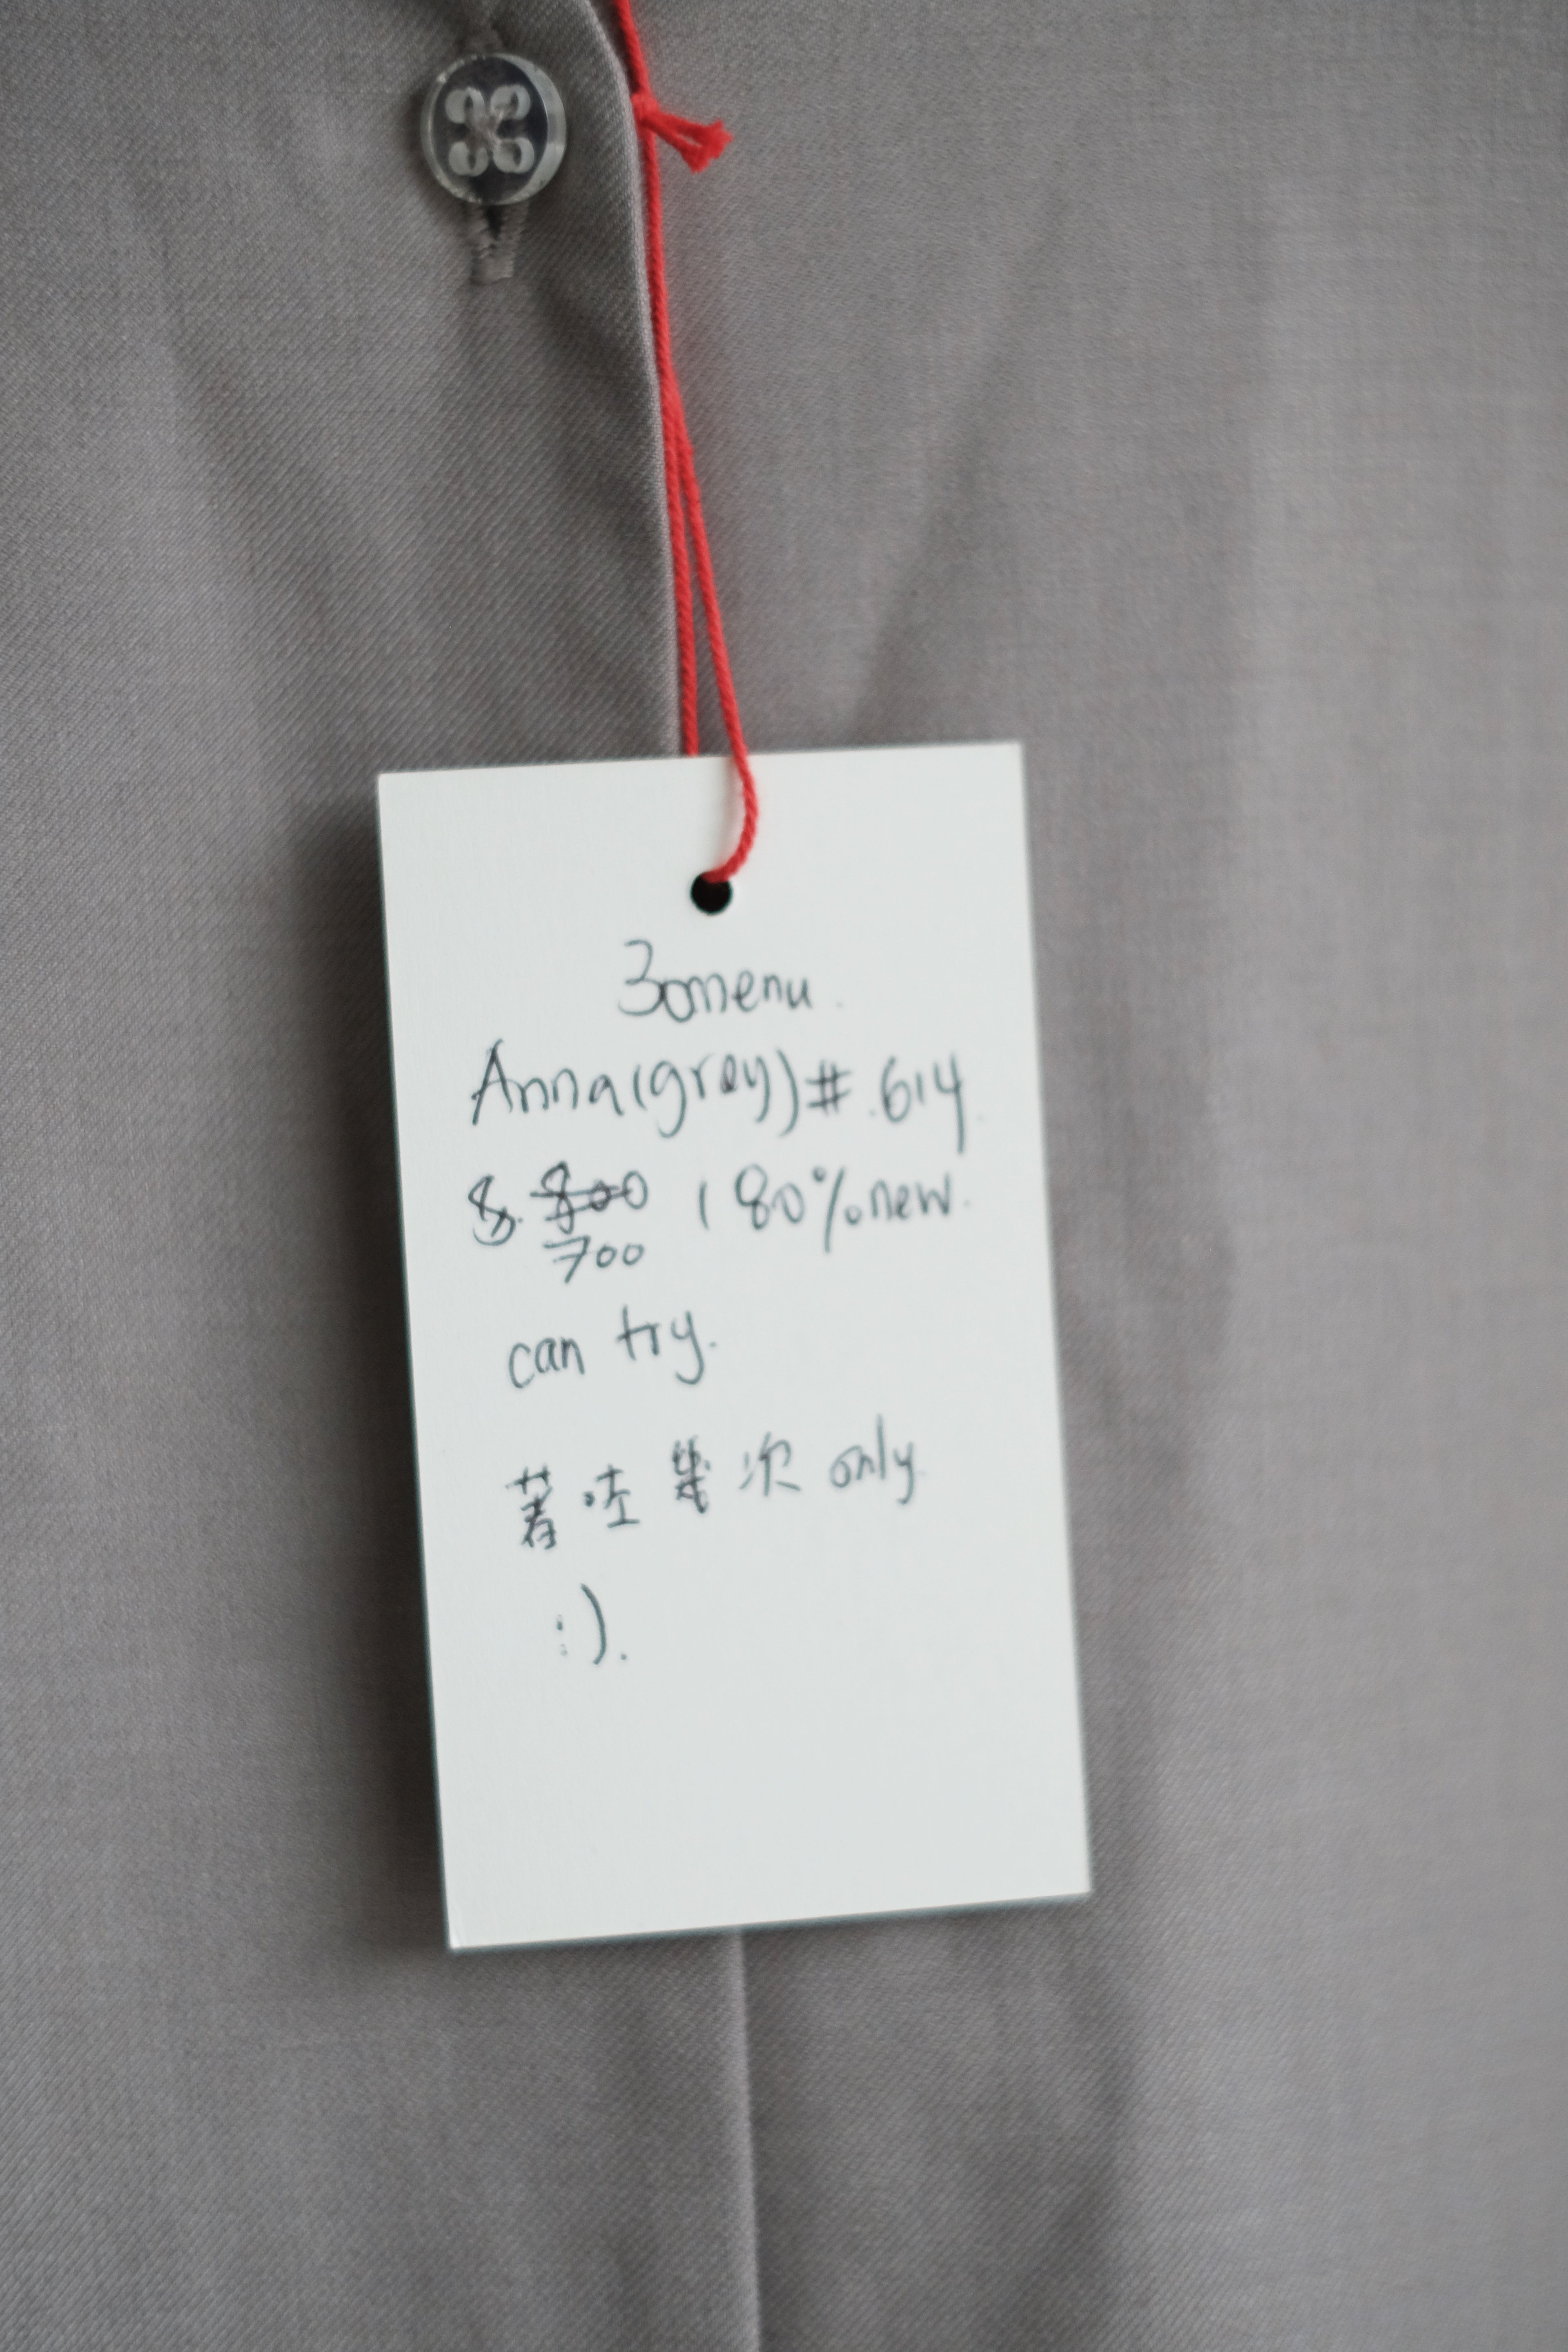 30menu.
Anna(grey)#.614.
$ 800 180%new.
700
can try.
著咗幾次 only
:).